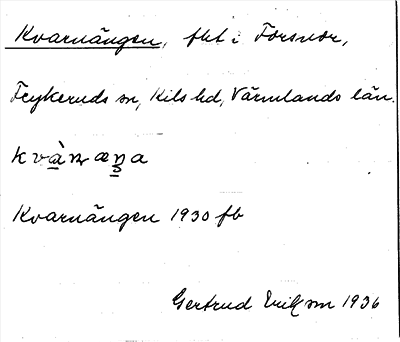 Kvarnängen, fkt i Forsnor,
Frykeruds sn, Kils hd, Värmlands län.
Kvarnängen 1930 fb
Gertrud Erikson 1936